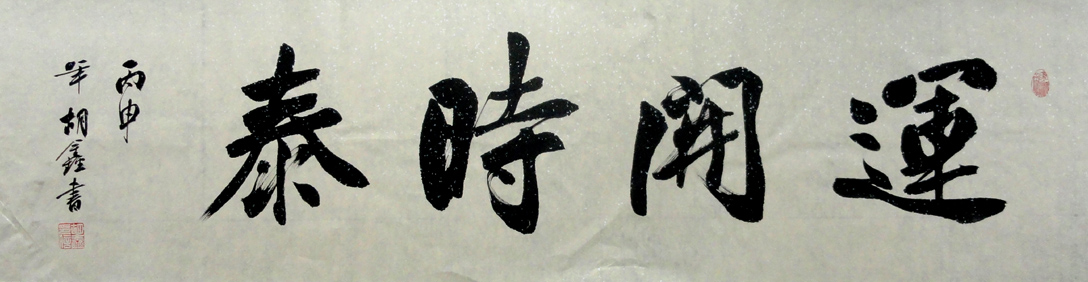 運開時泰
丙申
年胡鑫書